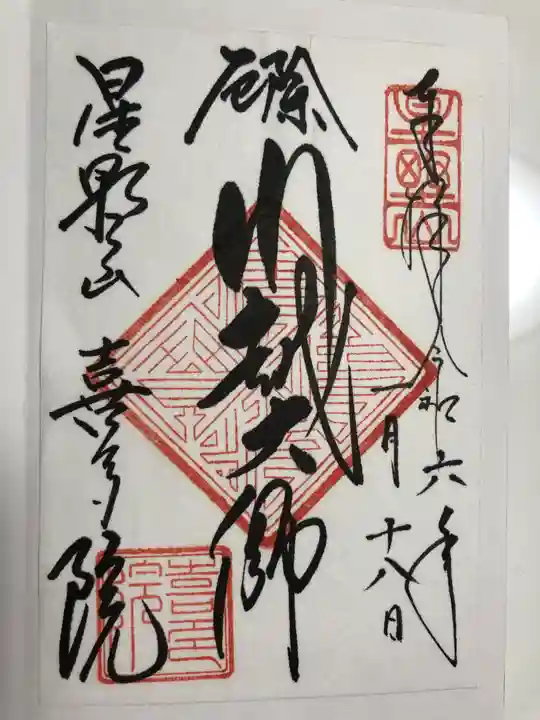 奉拝
令和六年
一月十八日
厄除
川越大師
星野山
喜多院